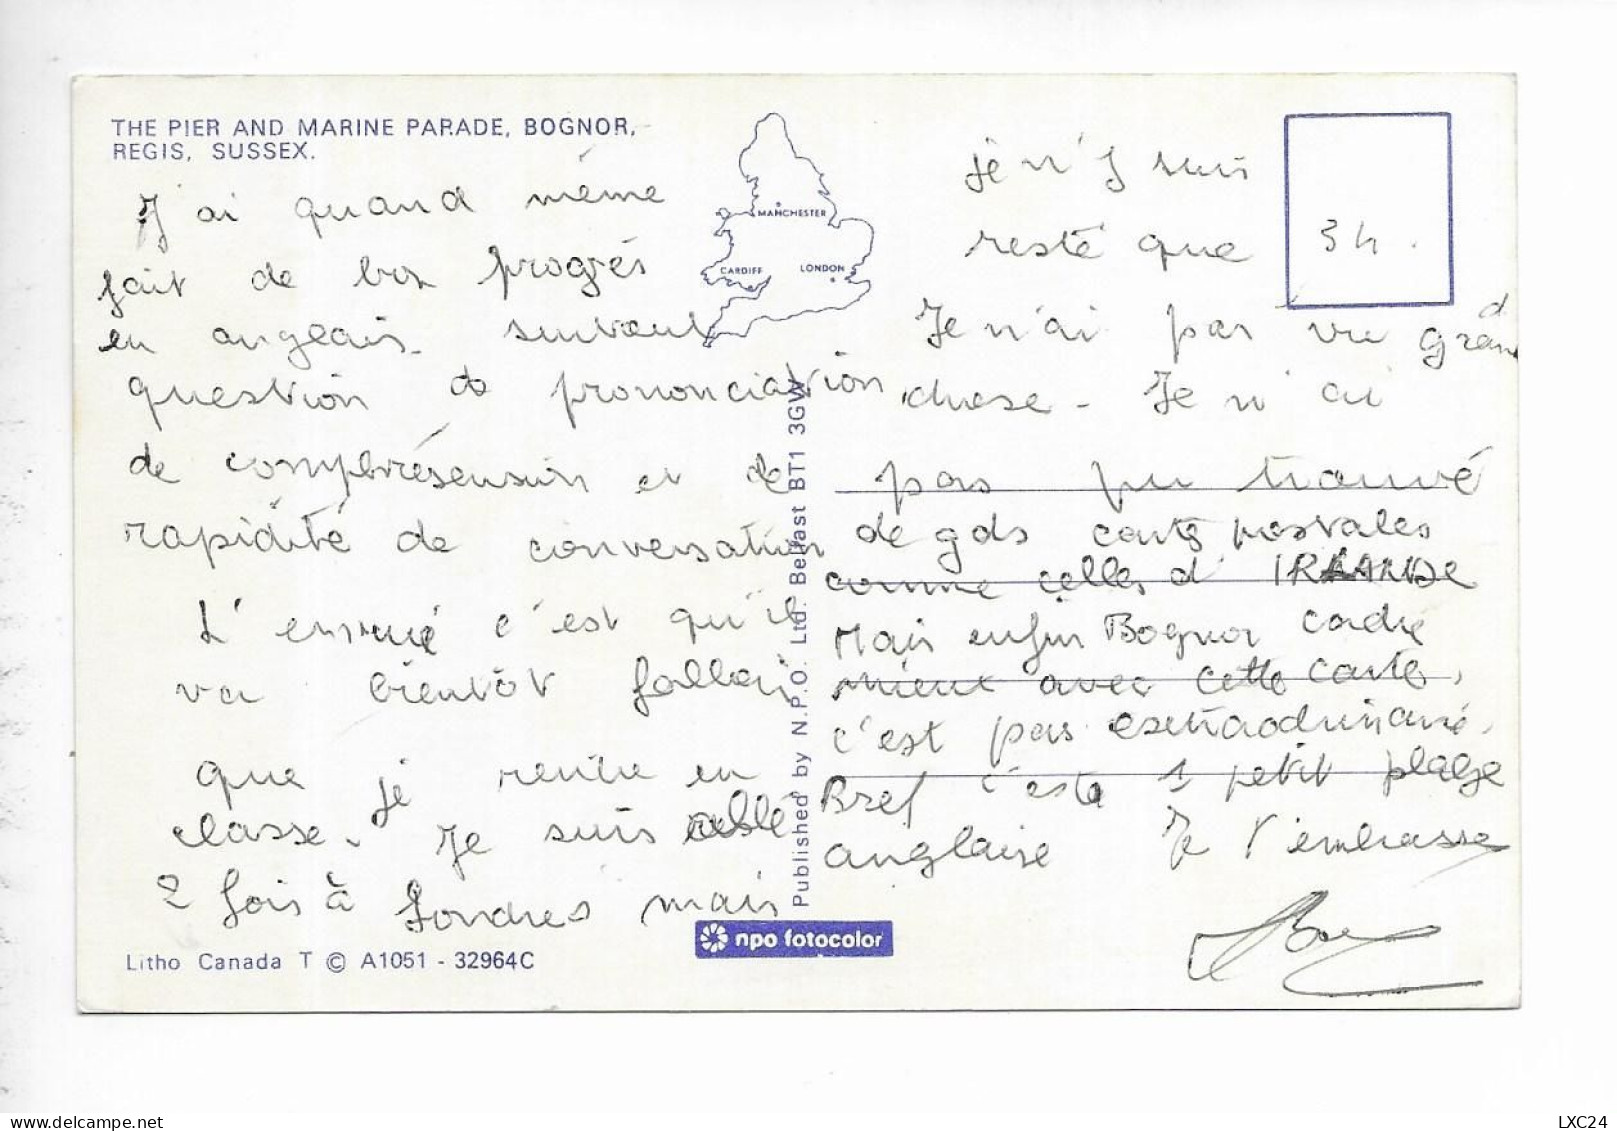 THE PIER AND MARINE PARADE, BOGNOR,
REGIS, SUSSEX.
J'ai quand même
fait de bon progrès
en anglais. surtout
question de prononciation
de compbrésension et de
rapidité de conversation
L'ennué c'est qu'il
va bientôt falloir
que je rentre en
classe. Je suis allé
2 fois à Londres mais
Je n'y suis
resté que 3h.
Je n'ai pas vu grand
chose - Je n'ai
pas pu trouvé
de gds cartes postales
comme celles d'IRLANDE
Mais enfin Bognor cadre
mieux avec cette carte,
c'est pas extraordinaire.
Bref c'est 1 petit plage
anglaise Je t'embrasse
MANCHESTER
CARDIFF
LONDON
Published by N.P.O. Ltd. Belfast BT1 3GW
npo fotocolor
Litho Canada T © A1051 - 32964C
LXC24